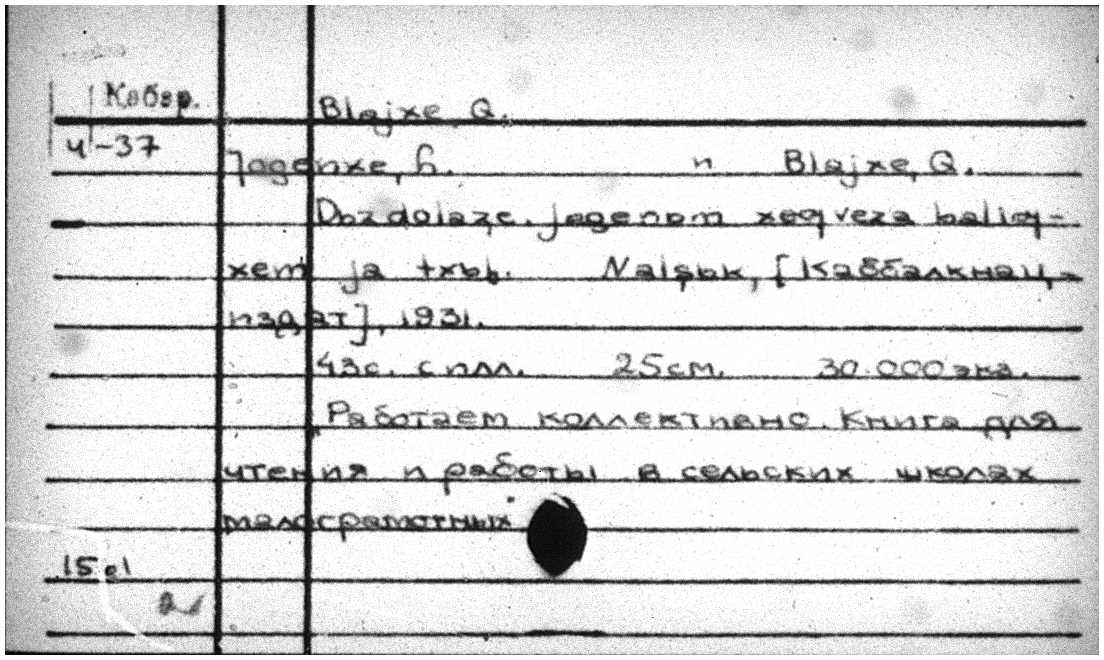 Кабар.
Blajxe Q.
ч-37
Jagenxe, h. и Blajxe, Q.
Dbzdolaze. Jagenьm xeqveza baliq-
xem ja txьb. Nalşьk, [Каббалкнац-
издат], 1931.
43с. с илл. 25см. 30.000 экз.
„Работаем коллективно. Книга для
чтения и работы в сельских школах
малограмотных"
15 el